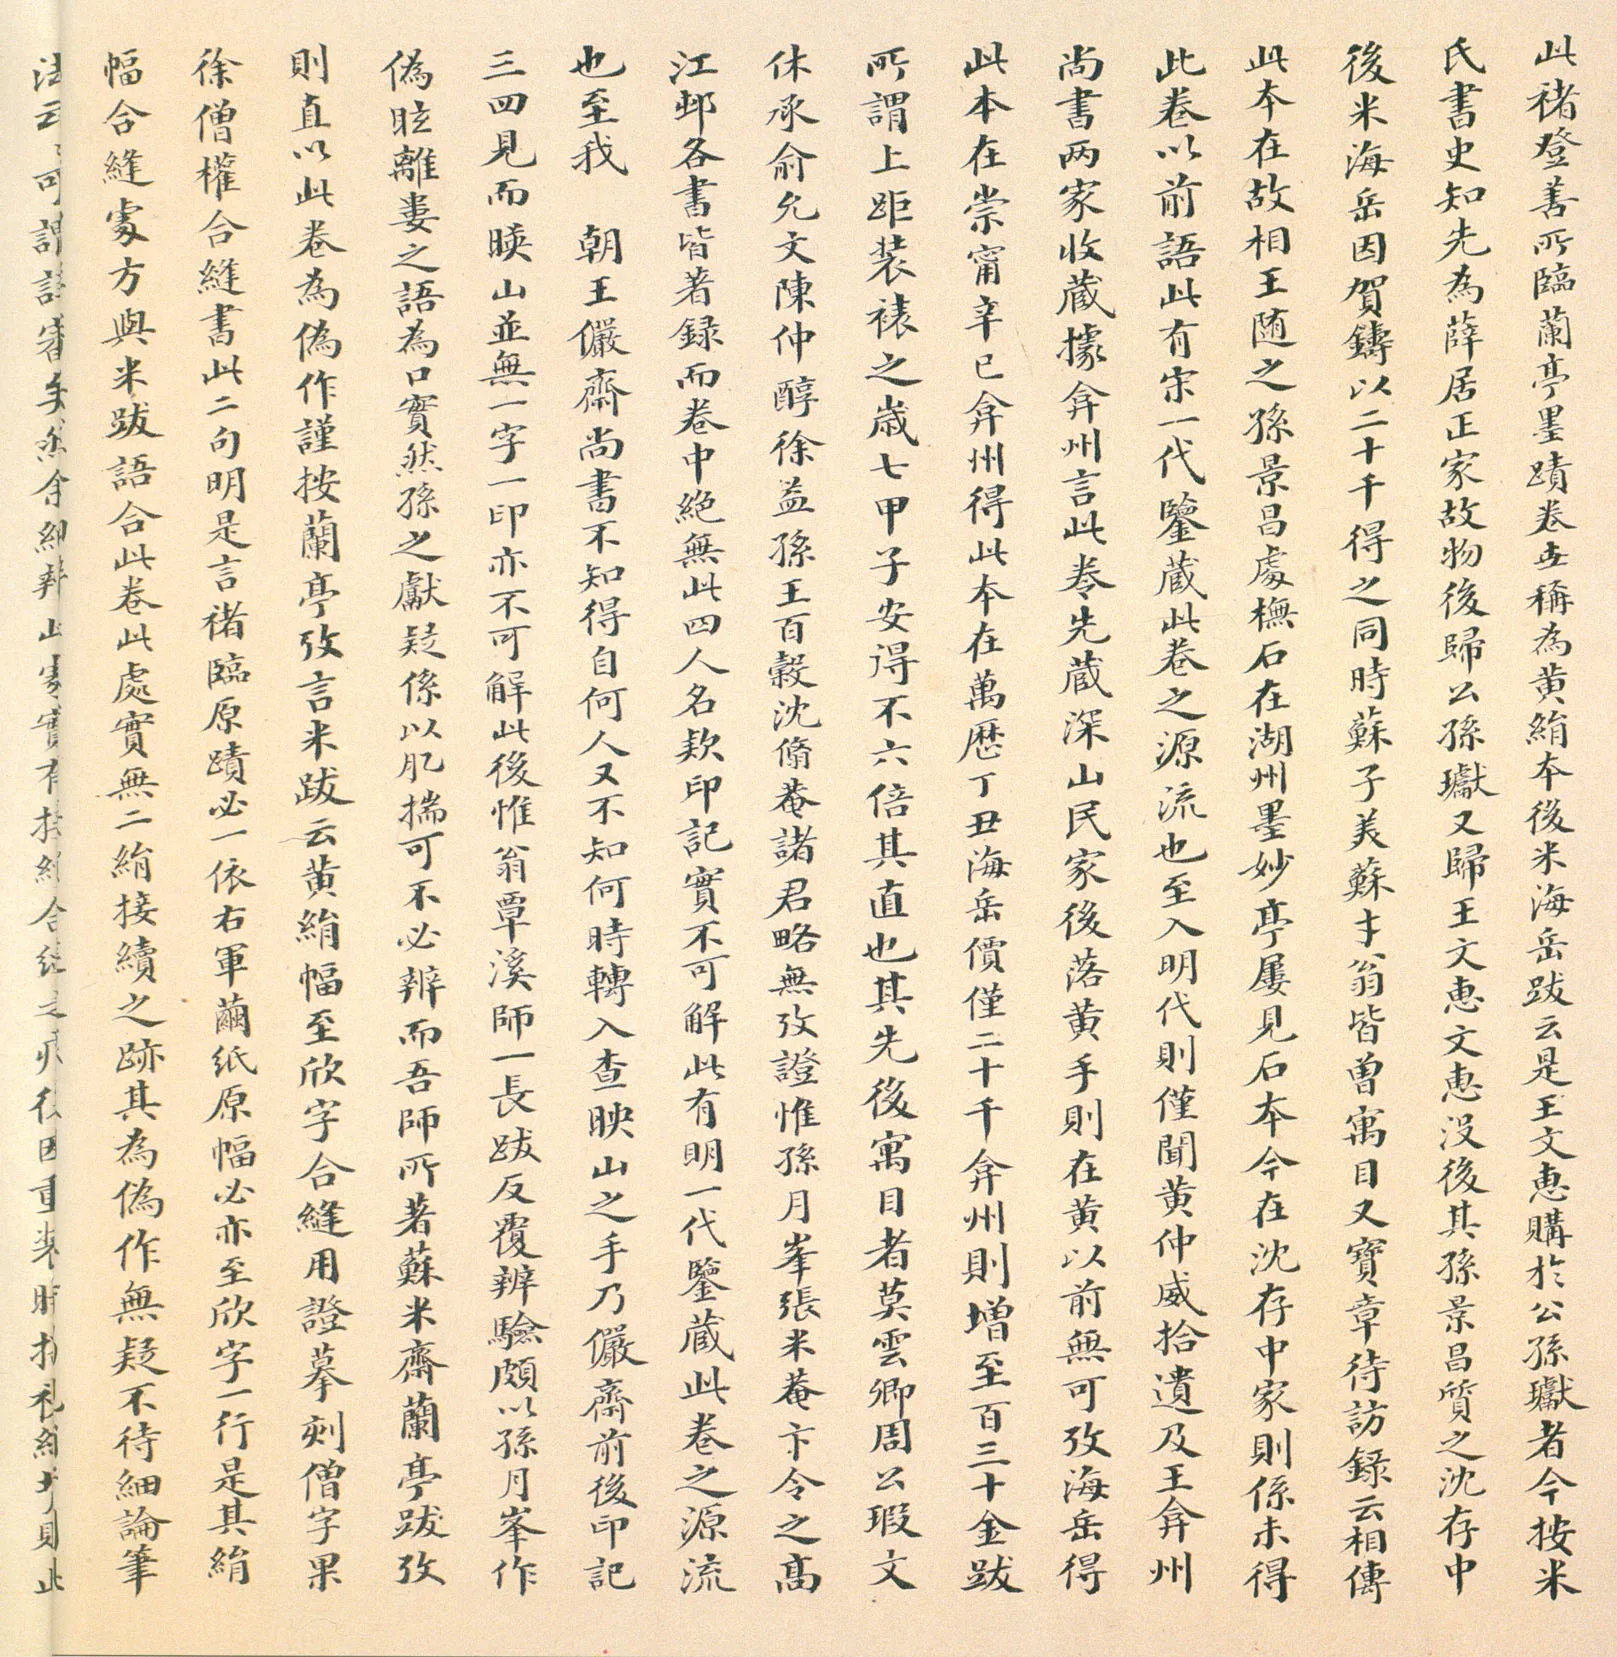 此褚登善所臨蘭亭墨蹟卷世稱為黃絹本後米海岳跋云是王文惠購於公孫瓛者今按米
氏書史知先為薛居正家故物後歸公孫瓛又歸王文惠文惠没後其孫景昌質之沈存中
後米海岳因賀鑄以二十千得之同時蘇子美蘇才翁皆曾寓目又寶章待訪錄云相傳
此本在故相王随之孫景昌處橅石在湖州墨妙亭屢見石本今在沈存中家則係未得
此卷以前語此有宋一代鑒藏此卷之源流也至入明代則僅聞黃仲威拾遺及王弇州
尚書两家收藏據弇州言此卷先藏深山民家後落黃手則在黃以前無可攷海岳得
此本在崇甯辛巳弇州得此本在萬歷丁丑海岳價僅二十千弇州則增至百三十金跋
所謂上距装裱之歲七甲子安得不六倍其直也其先後寓目者莫雲卿周公瑕文
休承俞允文陳仲醇徐益孫王百穀沈脩菴諸君略無攷證惟孫月峯張米菴卞令之高
江邨各書皆著録而卷中絕無此四人名欵印記實不可解此有明一代鑒藏此卷之源流
也至我　朝王儼齋尚書不知得自何人又不知何時轉入查映山之手乃儼齋前後印記
三四見而映山並無一字一印亦不可解此後惟翁覃溪師一長跋反覆辨驗頗以孫月峯作
偽眩離婁之語為口實然孫之獻疑係以肊揣可不必辨而吾師所著蘇米齋蘭亭跋攷
則直以此卷為偽作謹按蘭亭攷言米跋云黃絹幅至欣字合縫用證摹刻僧字果
徐僧權合縫書此二句明是言褚臨原蹟必一依右軍繭紙原幅必亦至欣字一行是其絹
幅合縫處方與米跋語合此卷此處實無二絹接續之跡其為偽作無疑不待細論筆
法云云可謂詳審矣然余細辨此處實有接絹合縫之